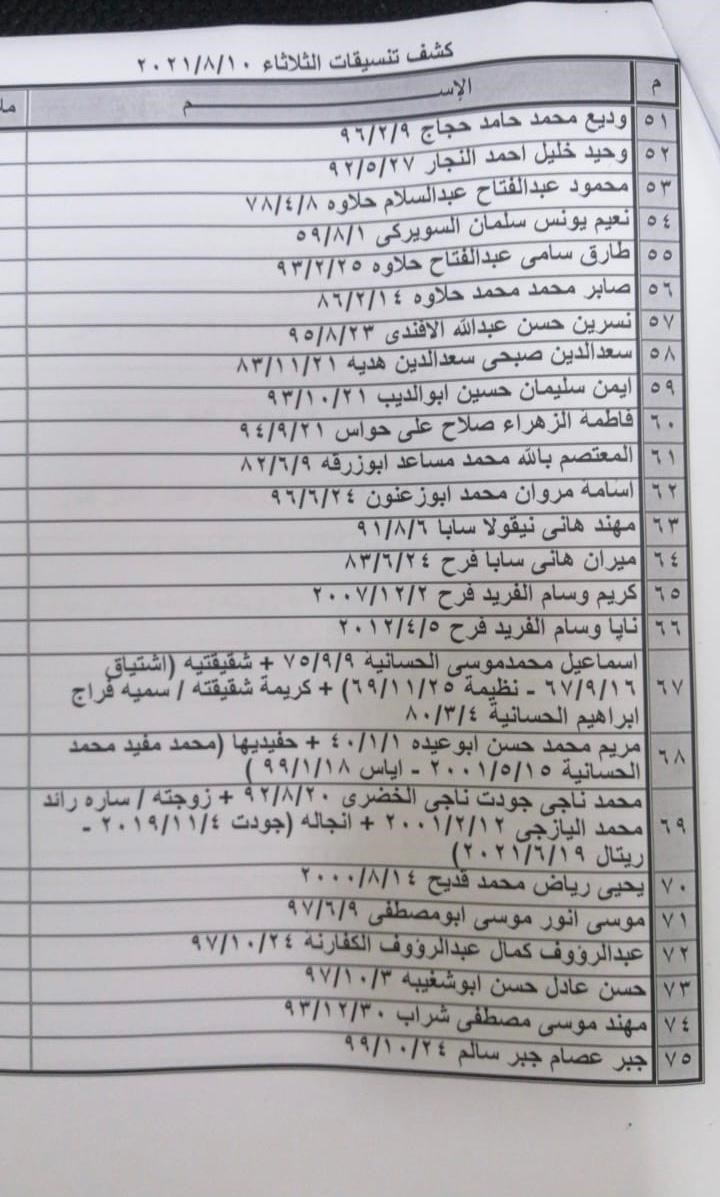 كشف تنسيقات الثلاثاء ٢٠٢١/٨/١٠
م الإســـــــم ملا
٥١ وديع محمد حامد حجاج ٩٦/٢/٩
٥٢ وحيد خليل احمد النجار ٩٢/٥/٢٧
٥٣ محمود عبدالفتاح عبدالسلام حلاوه ٧٨/٤/٨
٥٤ نعيم يونس سلمان السويركى ٥٩/٨/١
٥٥ طارق سامى عبدالفتاح حلاوه ٩٣/٢/٢٥
٥٦ صابر محمد محمد حلاوه ٨٦/٢/١٤
٥٧ نسرين حسن عبدالله الافندى ٩٥/٨/٢٣
٥٨ سعدالدين صبحى سعدالدين هديه ٨٣/١١/٢١
٥٩ ايمن سليمان حسين ابوالديب ٩٣/١٠/٢١
٦٠ فاطمة الزهراء صلاح على حواس ٩٤/٩/٢١
٦١ المعتصم بالله محمد مساعد ابوزرقه ٨٢/٦/٩
٦٢ اسامة مروان محمد ابوزعنون ٩٦/٦/٢٤
٦٣ مهند هانى نيقولا سابا ٩١/٨/٦
٦٤ ميران هانى سابا فرح ٨٣/٦/٢٤
٦٥ كريم وسام الفريد فرح ٢٠٠٧/١٢/٢
٦٦ نايا وسام الفريد فرح ٢٠١٢/٤/٥
اسماعيل محمدموسى الحسانية ٧٥/٩/٩ + شقيقتيه (اشتياق
٦٧ ٦٧/٩/١٦ - نظيمة ٦٩/١١/٢٥) + كريمة شقيقته / سميه فراج
ابراهيم الحسانية ٨٠/٣/٤
٦٨ مريم محمد حسن ابوعيده ٤٠/١/١ + حفيديها (محمد مفيد محمد
الحسانية ٢٠٠١/٥/١٥ - اياس ٩٩/١/١٨ )
محمد ناجى جودت ناجى الخضرى ٩٢/٨/٢٠ + زوجته / ساره رائد
٦٩ محمد اليازجى ٢٠٠١/٢/١٢ + انجاله (جودت ٢٠١٩/١١/٤ -
ريتال ٢٠٢١/٦/١٩)
٧٠ يحيى رياض محمد قديح ٢٠٠٠/٨/١٤
٧١ موسى انور موسى ابومصطفى ٩٧/٦/٩
٧٢ عبدالرؤوف كمال عبدالرؤوف الكفارنة ٩٧/١٠/٢٤
٧٣ حسن عادل حسن ابوشغيبه ٩٧/١٠/٣
٧٤ مهند موسى مصطفى شراب ٩٣/١٢/٣٠
٧٥ جبر عصام جبر سالم ٩٩/١٠/٢٤